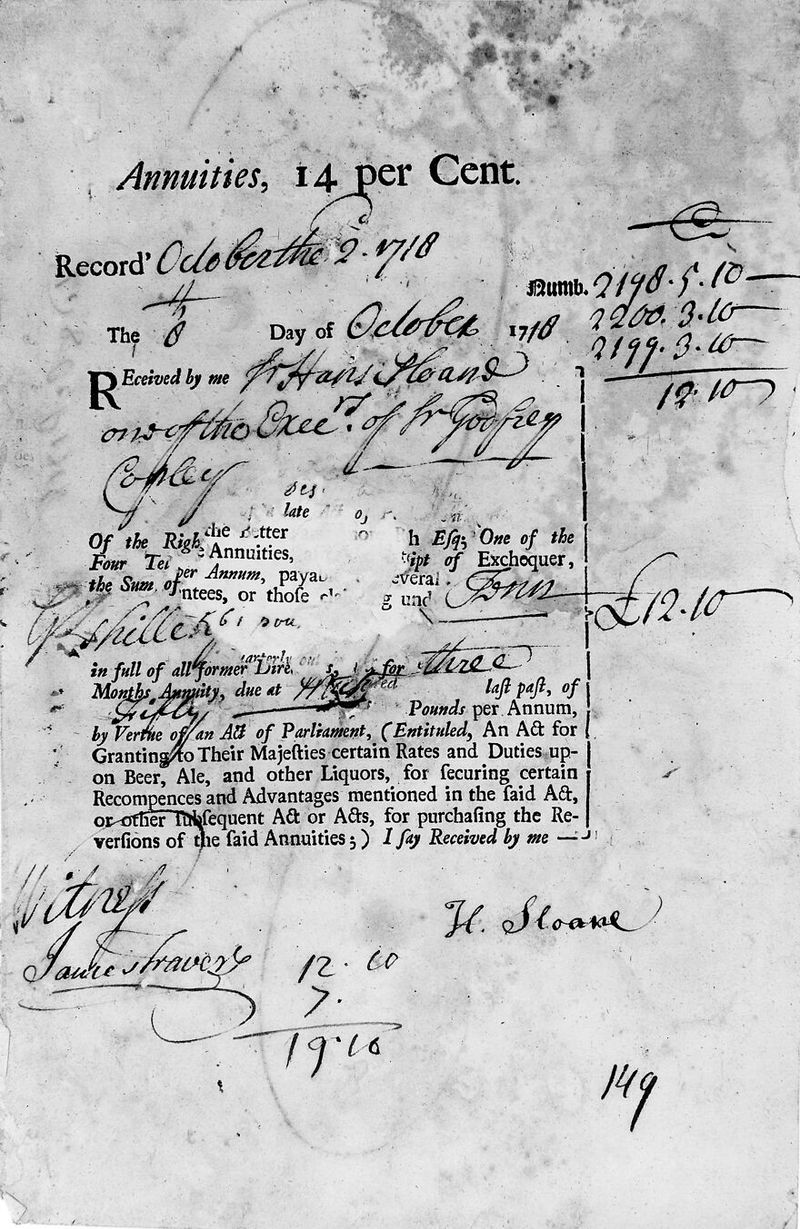 Annuities, 14 per Cent.
Record' October the 2d. 1718
Numb. 2198.5.10
2200.3.10
2199.3.10
12.10
The 8 Day of October 1718
REceived by me Sr Hans Sloane
one of the Execrs. of Sr Godfrey
Copley
late
the Better
Of the Righ h Esq; One of the
Four Tel Annuities, ipt of Exchequer,
per Annum, paya everal
the Sum of ntees, or those g und
£12.10
in full of all former Dire s, for three
Months Annuity, due at last past, of
Fifty Pounds per Annum,
by Vertue of an Act of Parliament, (Entituled, An Act for
Granting to Their Majeſties certain Rates and Duties up-
on Beer, Ale, and other Liquors, for ſecuring certain
Recompences and Advantages mentioned in the ſaid Act,
or other ſubſequent Act or Acts, for purchaſing the Re-
verſions of the ſaid Annuities;) I ſay Received by me
Witness
H. Sloane
James Travers
12.10
7.
19.10
149